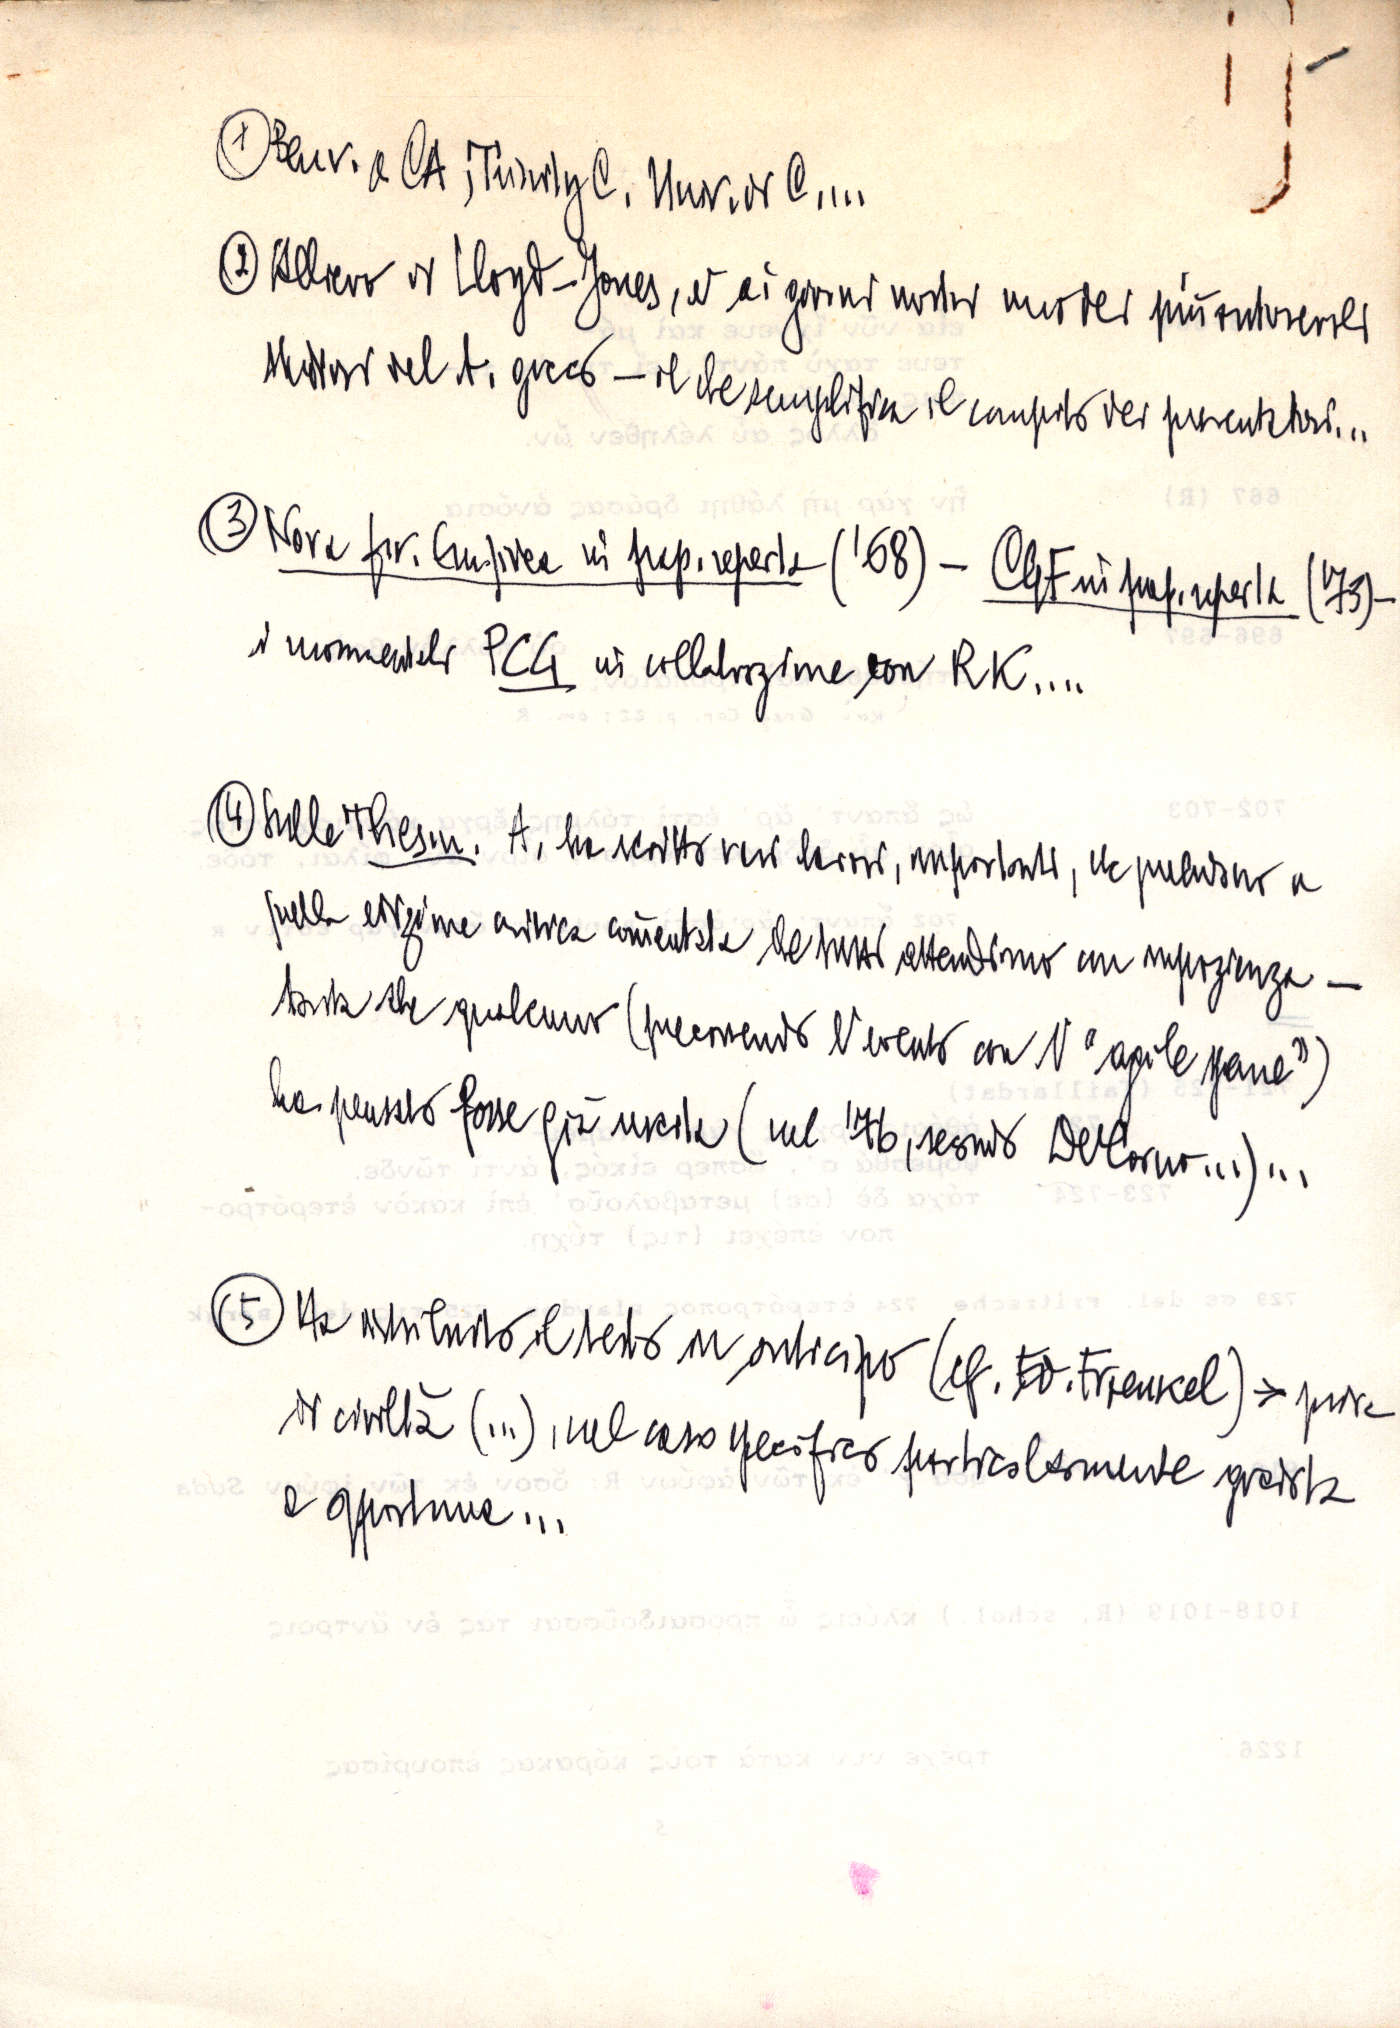 ① Benv. a CA, Trinity C. Univ. di C....
② Allievo di Lloyd-Jones, è ai giorni nostri uno dei più autorevoli
studiosi del t. greco — il che semplifica il compito dei presentatori...
③ Nova fr. Euripidea in pap. reperta ('68) — CGF in pap. reperta ('73) —
i monumentali PCG in collaborazione con RK....
④ Sulle Thesm. A. ha scritto vari lavori, importanti, che preludono a
quella edizione critica commentata che tutti attendiamo con impazienza —
tanto che qualcuno (precorrendo l'evento con l' "agile" )
ha pensato fosse già uscita (nel '76, secondo Del Corno...)...
⑤ Ha distribuito il testo in anticipo (cf. Ed. Fraenkel) → prova
di civiltà (...), nel caso specifico particolarmente gradita
e opportuna...